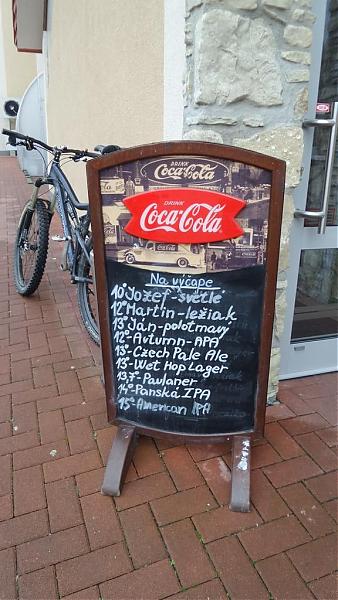 DRINK
Coca-Cola
DRINK
Coca-Cola
Na výčape
10° Jožef-světlé
12° Martin-ležiak
13° Ján-polotmavý
12°-Autumn-APA
13°-Czech Pale Ale
13°-Wet Hop Lager
13,7°-Paulaner
14°-Panská IPA
15°-American IPA